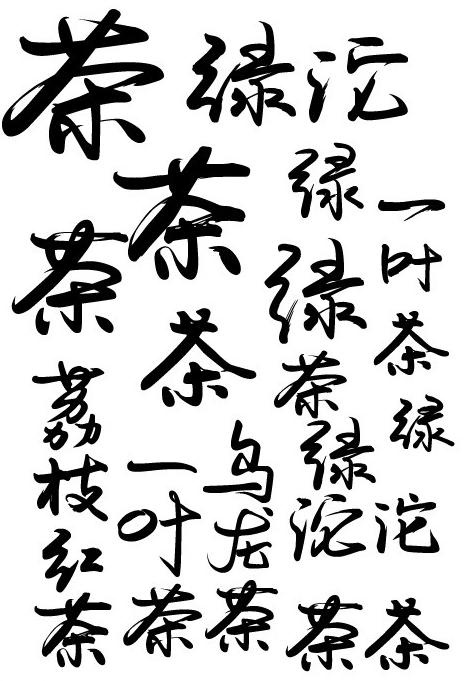 茶
绿沱
茶
茶
茶
绿
绿
一叶茶
荔枝红茶
一叶茶
乌龙茶
茶
绿
绿沱茶
沱茶